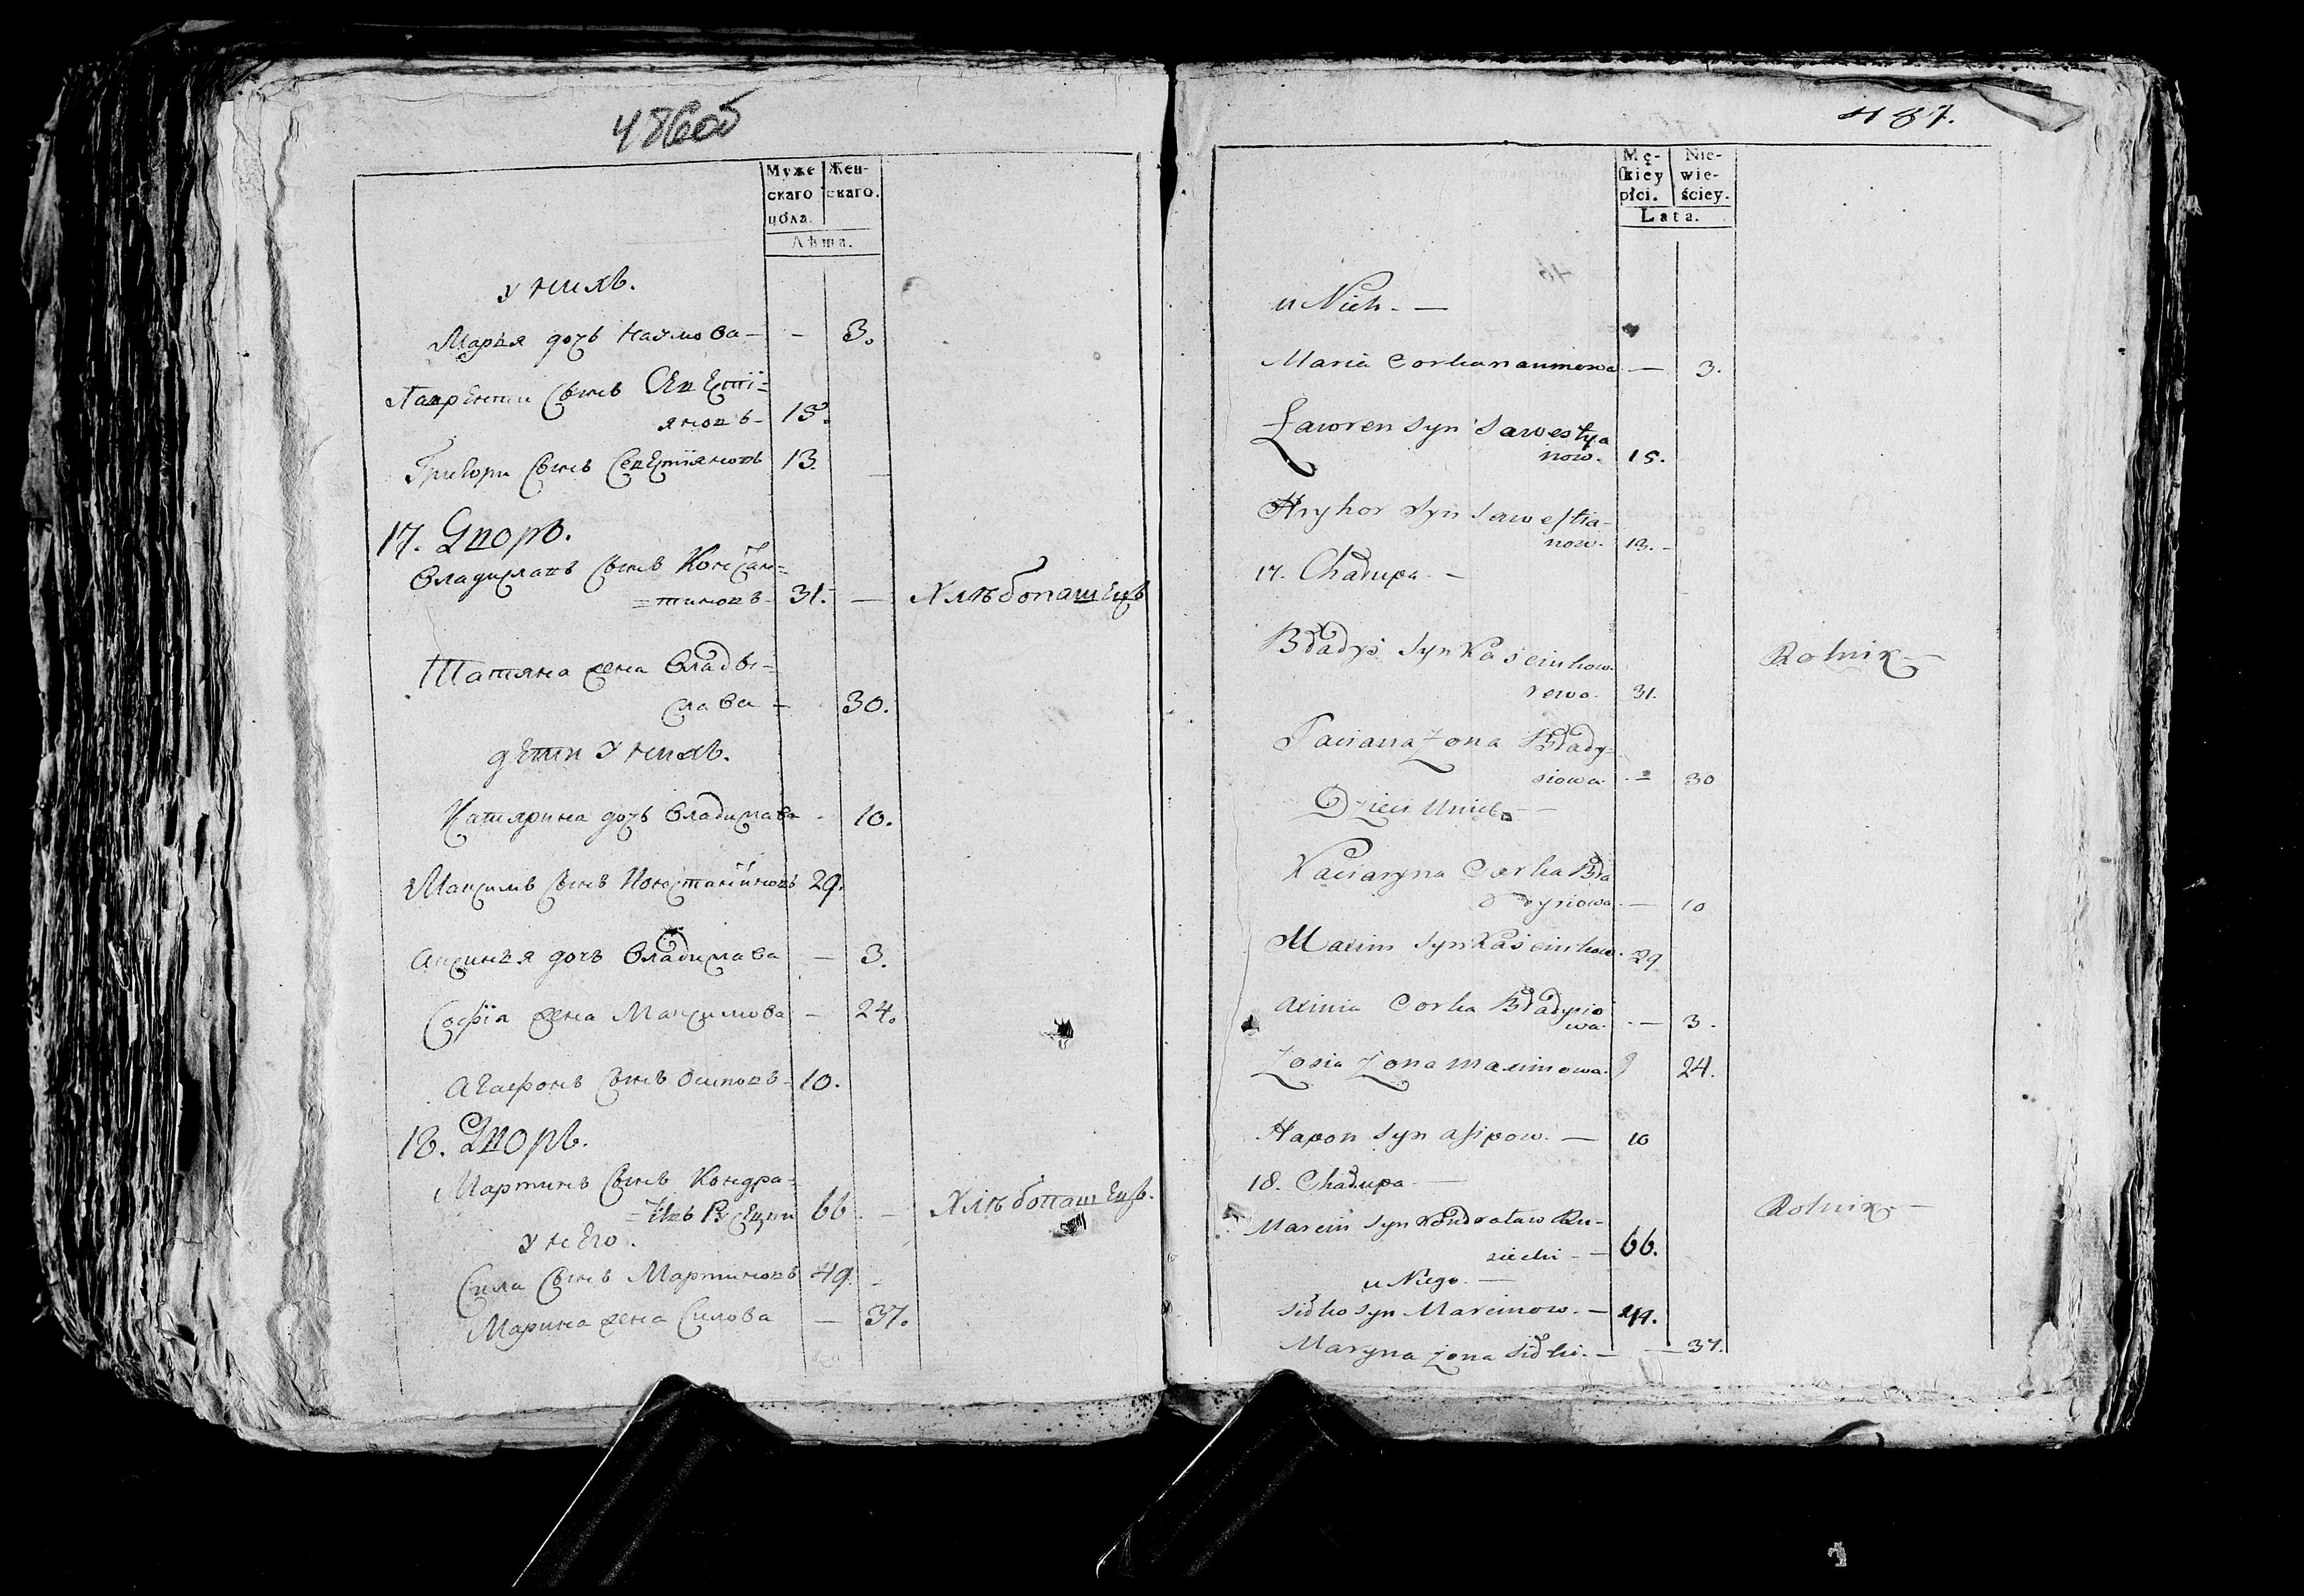 486об
Муже Жен-
скаго скаго.
пола.
Лѣта.
у нихъ.
Марья дочь Наумова — — 3.
Лаврентии сынъ Севѣстї=
яновъ — 15.
Григори сынъ Севѣстїяновъ 13.
17. Дворъ.
Владиславъ сынъ Констан=
=тиновъ 31. — Хлѣбопашецъ
Татяна жена Влады=
слава — 30.
дети у нихъ.
Катярина дочь Владислава 10.
Максимъ сынъ Константиновъ 29.
Аксинья дочь Владислава — 3.
Софїя жена Максимова — 24.
Агафонъ сынъ Осиповъ — 10.
18. Дворъ.
Мартинъ сынъ Кондра=
66 — Хлѣбопашецъ.
у него.
Сила сынъ Мартиновъ 49. —
Марина жена Силова — 37.
487.
Mę- Nie-
skiey wie-
płci. ściey.
Lata.
u Nich. —
Maria Corka naumowa — 3.
Ławren syn Sawestya
now. 15.
Hryhor Syn Sawestia-
now. 13. —
17. Chałupa. —
Władyś Syn Kaściukow. Rolnik —
31.
Taciana Zona Włady=
siowa. — 30
Dzieci u nich —
Kaciaryna Corka Wła
dysiowa. — 10
Maxim Syn Kaściukow. 29
axinia Corka Władysio
wa. — 3.
Zosia Zona maximowa. 24.
Hapon Syn asipow. — 10
18. Chałupa —
Marcin Syn Kondratow Ru- Rolnik —
siecki — — 66.
u Niego. —
Siłko syn Marcinow. — 49.
Maryna Zona Siłki. — — 37.